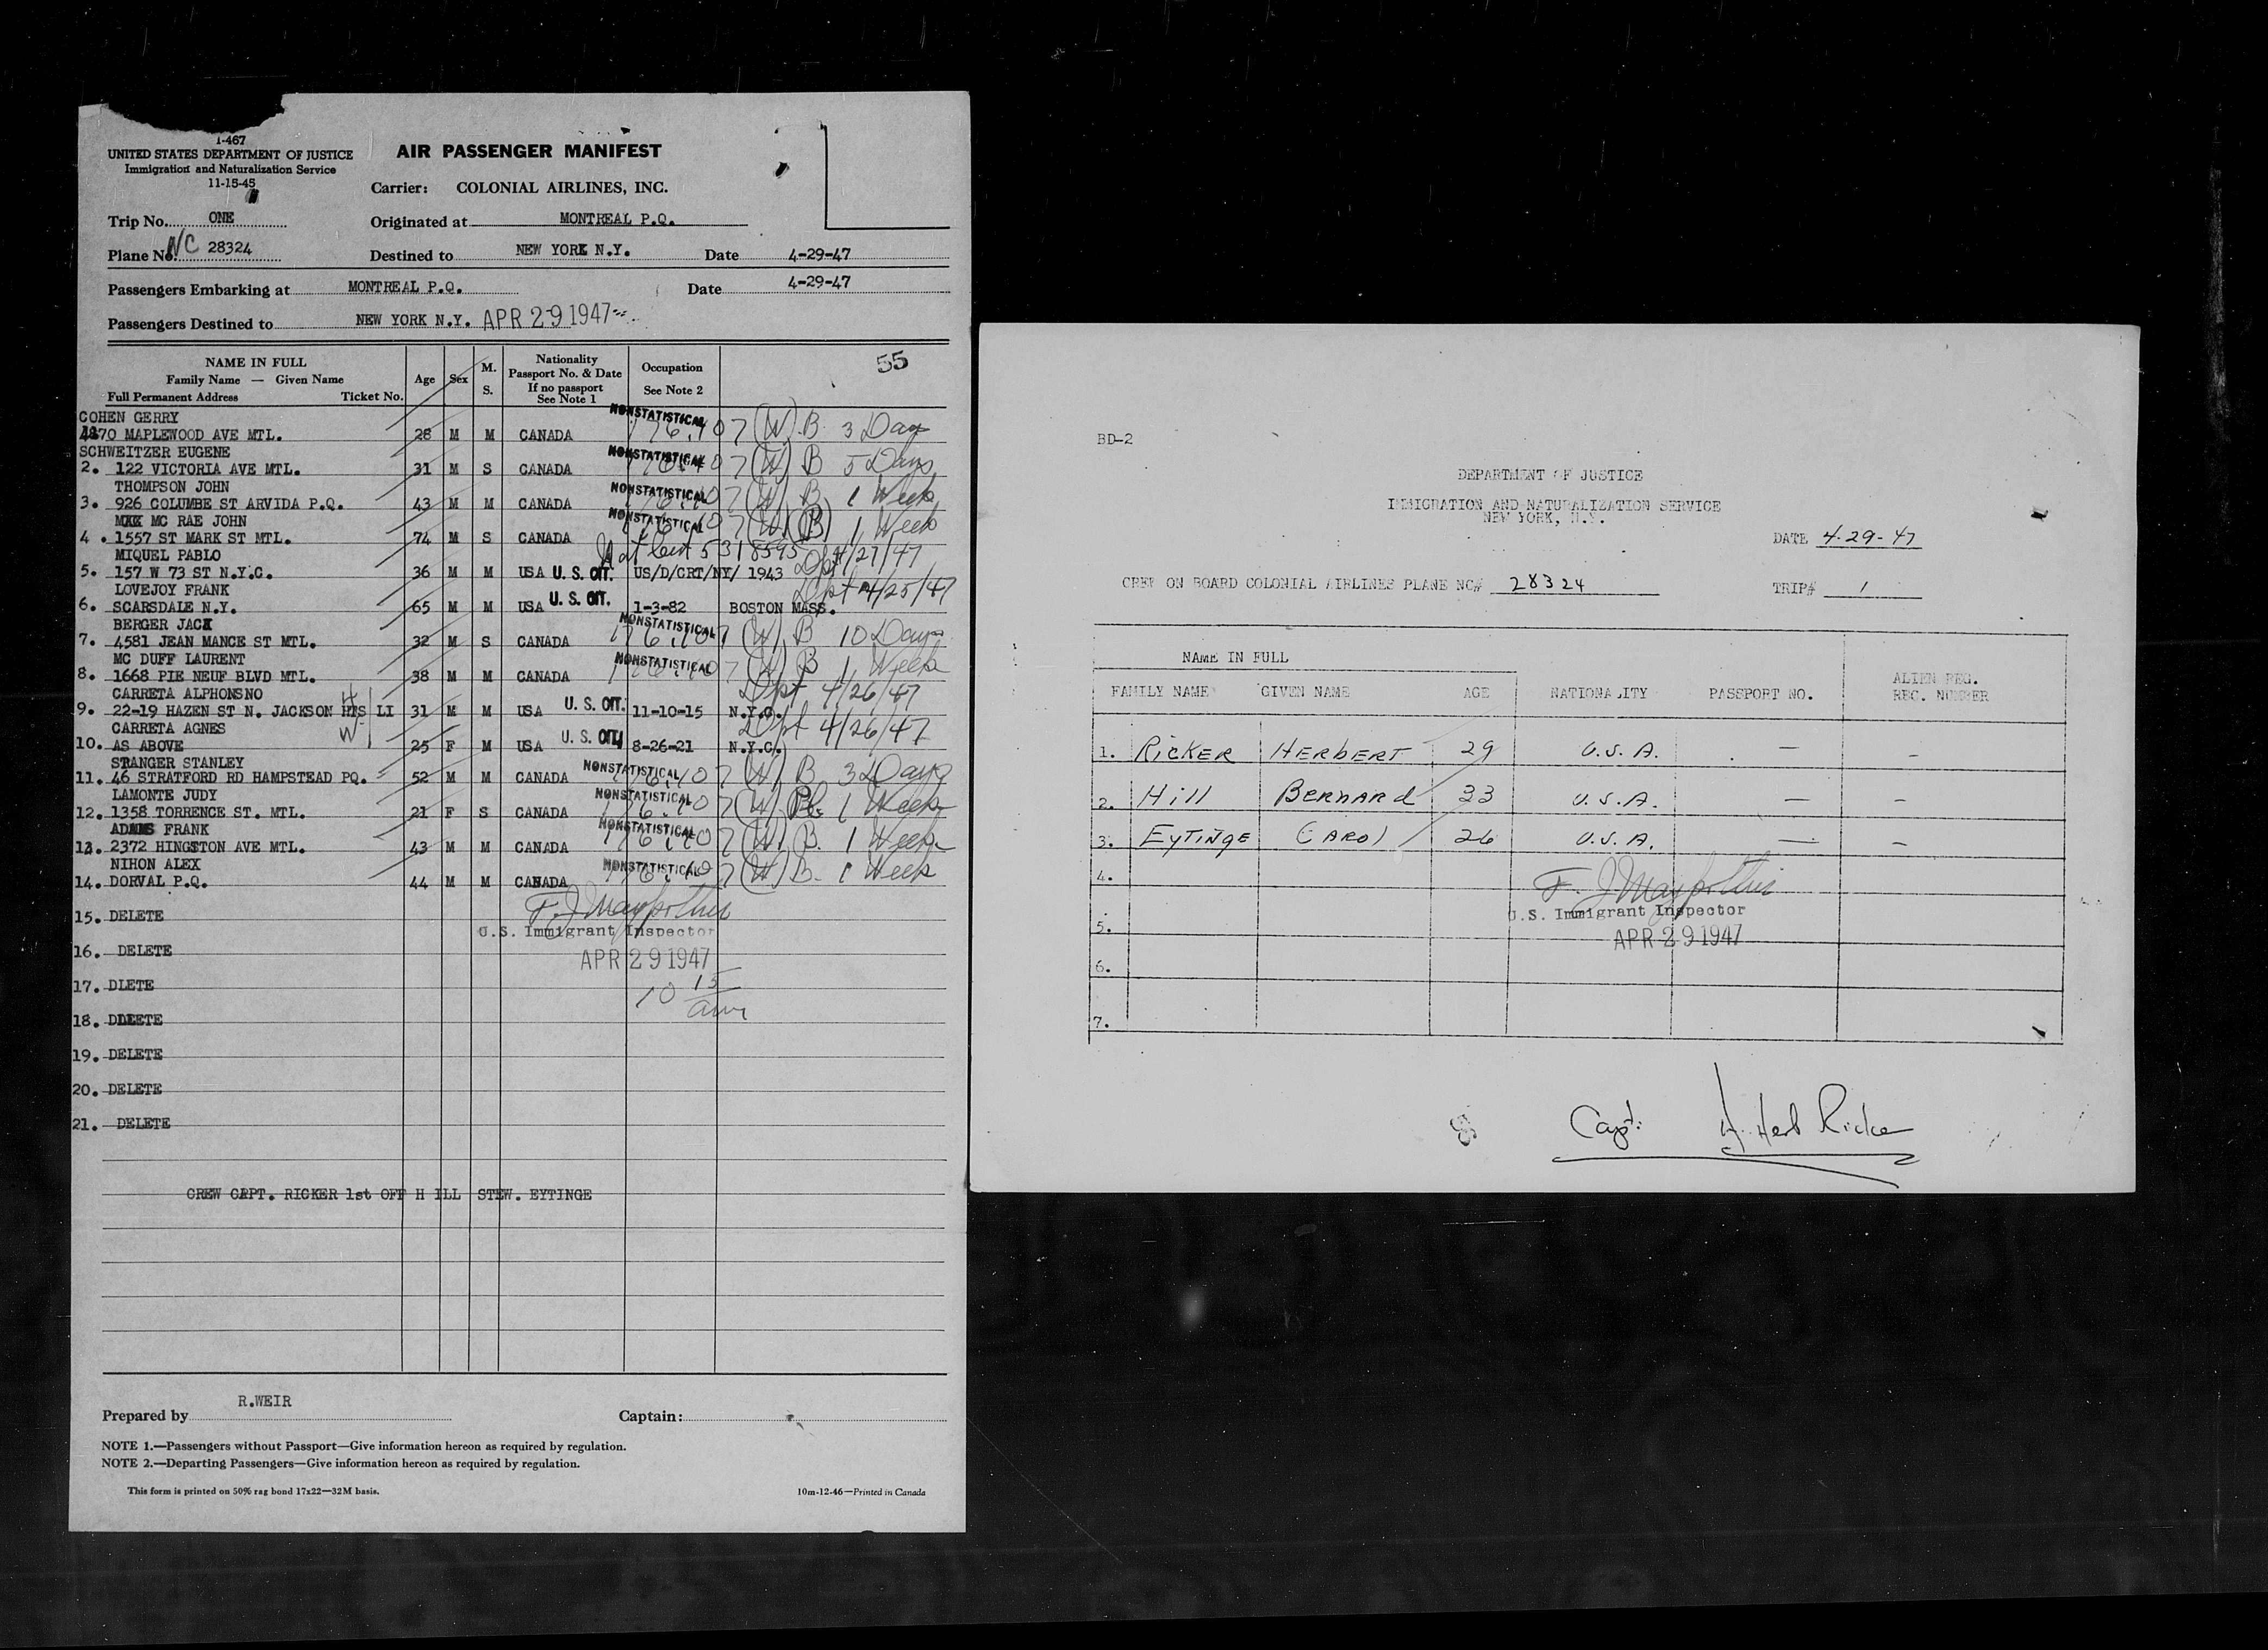 I-467
UNITED STATES DEPARTMENT OF JUSTICE
Immigration and Naturalization Service
11-15-45
AIR PASSENGER MANIFEST
Carrier: COLONIAL AIRLINES, INC.
Trip No. ONE Originated at MONTREAL P.Q.
Plane No. NC 28324 Destined to NEW YORK N.Y. Date 4-29-47
Passengers Embarking at MONTREAL P.Q. Date 4-29-47
Passengers Destined to NEW YORK N.Y. APR 29 1947
NAME IN FULL
Family Name — Given Name
Full Permanent Address Ticket No.
Age
Sex
M. S.
Nationality
Passport No. & Date
If no passport
See Note 1
Occupation
See Note 2
55
COHEN GERRY NONSTATISTICAL
4870 MAPLEWOOD AVE MTL. 28 M M CANADA 176.107 (W) B 3 Days
SCHWEITZER EUGENE NONSTATISTICAL
2. 122 VICTORIA AVE MTL. 31 M S CANADA 176.107 (W) B 5 Days
THOMPSON JOHN NONSTATISTICAL
3. 926 COLUMBE ST ARVIDA P.Q. 43 M M CANADA 176.107 (W) B 1 Week
MC RAE JOHN NONSTATISTICAL
4. 1557 ST MARK ST MTL. 74 M S CANADA 176.107 (W) (B) 1 Week
MIQUEL PABLO Nat Cert 5318595 Dpt 4/27/47
5. 157 W 73 ST N.Y.C. 36 M M USA U.S. CIT. US/D/CRT/NY/ 1943
LOVEJOY FRANK Dpt 4/25/47
6. SCARSDALE N.Y. 65 M M USA U.S. CIT. 1-3-82 BOSTON MASS.
BERGER JACK NONSTATISTICAL
7. 4581 JEAN MANCE ST MTL. 32 M S CANADA 176.107 (W) B 10 Days
MC DUFF LAURENT NONSTATISTICAL
8. 1668 PIE NEUF BLVD MTL. 38 M M CANADA 176.107 (W) B 1 Week
CARRETA ALPHONSNO H Dpt 4/26/47
9. 22-19 HAZEN ST N. JACKSON HTS LI 31 M M USA U.S. CIT. 11-10-15 N.Y.C.
CARRETA AGNES W Dpt 4/26/47
10. AS ABOVE 25 F M USA U.S. CIT. 8-26-21 N.Y.C.
STRANGER STANLEY NONSTATISTICAL
11. 46 STRATFORD RD HAMPSTEAD PQ. 52 M M CANADA 176.107 (W) B 3 Days
LAMONTE JUDY NONSTATISTICAL
12. 1358 TORRENCE ST. MTL. 21 F S CANADA 176.107 (W) Pl. 1 Week
ADAMS FRANK NONSTATISTICAL
13. 2372 HINGSTON AVE MTL. 43 M M CANADA 176.107 (W) B. 1 Week
NIHON ALEX NONSTATISTICAL
14. DORVAL P.Q. 44 M M CANADA 176.107 (W) B. 1 Week
15. DELETE
U.S. Immigrant Inspector
16. DELETE APR 29 1947
17. DLETE 10 15 am
18. DELETE
19. DELETE
20. DELETE
21. DELETE
CREW CAPT. RICKER 1st OFF H ILL STEW. EYTINGE
Prepared by R.WEIR Captain:
NOTE 1.—Passengers without Passport—Give information hereon as required by regulation.
NOTE 2.—Departing Passengers—Give information hereon as required by regulation.
This form is printed on 50% rag bond 17x22—32M basis. 10m-12-46—Printed in Canada
BD-2
DEPARTMENT OF JUSTICE
IMMIGRATION AND NATURALIZATION SERVICE
NEW YORK, N.Y.
DATE 4-29-47
CREW ON BOARD COLONIAL AIRLINES PLANE NC# 28324 TRIP# 1
NAME IN FULL
FAMILY NAME GIVEN NAME AGE NATIONALITY PASSPORT NO. ALIEN REG. REG. NUMBER
1. RICKER HERBERT 29 U.S.A. — —
2. Hill BERNARd 33 U.S.A. — —
3. EyTINgE CAROl 26 U.S.A. — —
4.
U.S. Immigrant Inspector
5. APR 29 1947
6.
7.
Capt. H. Herb Ricker